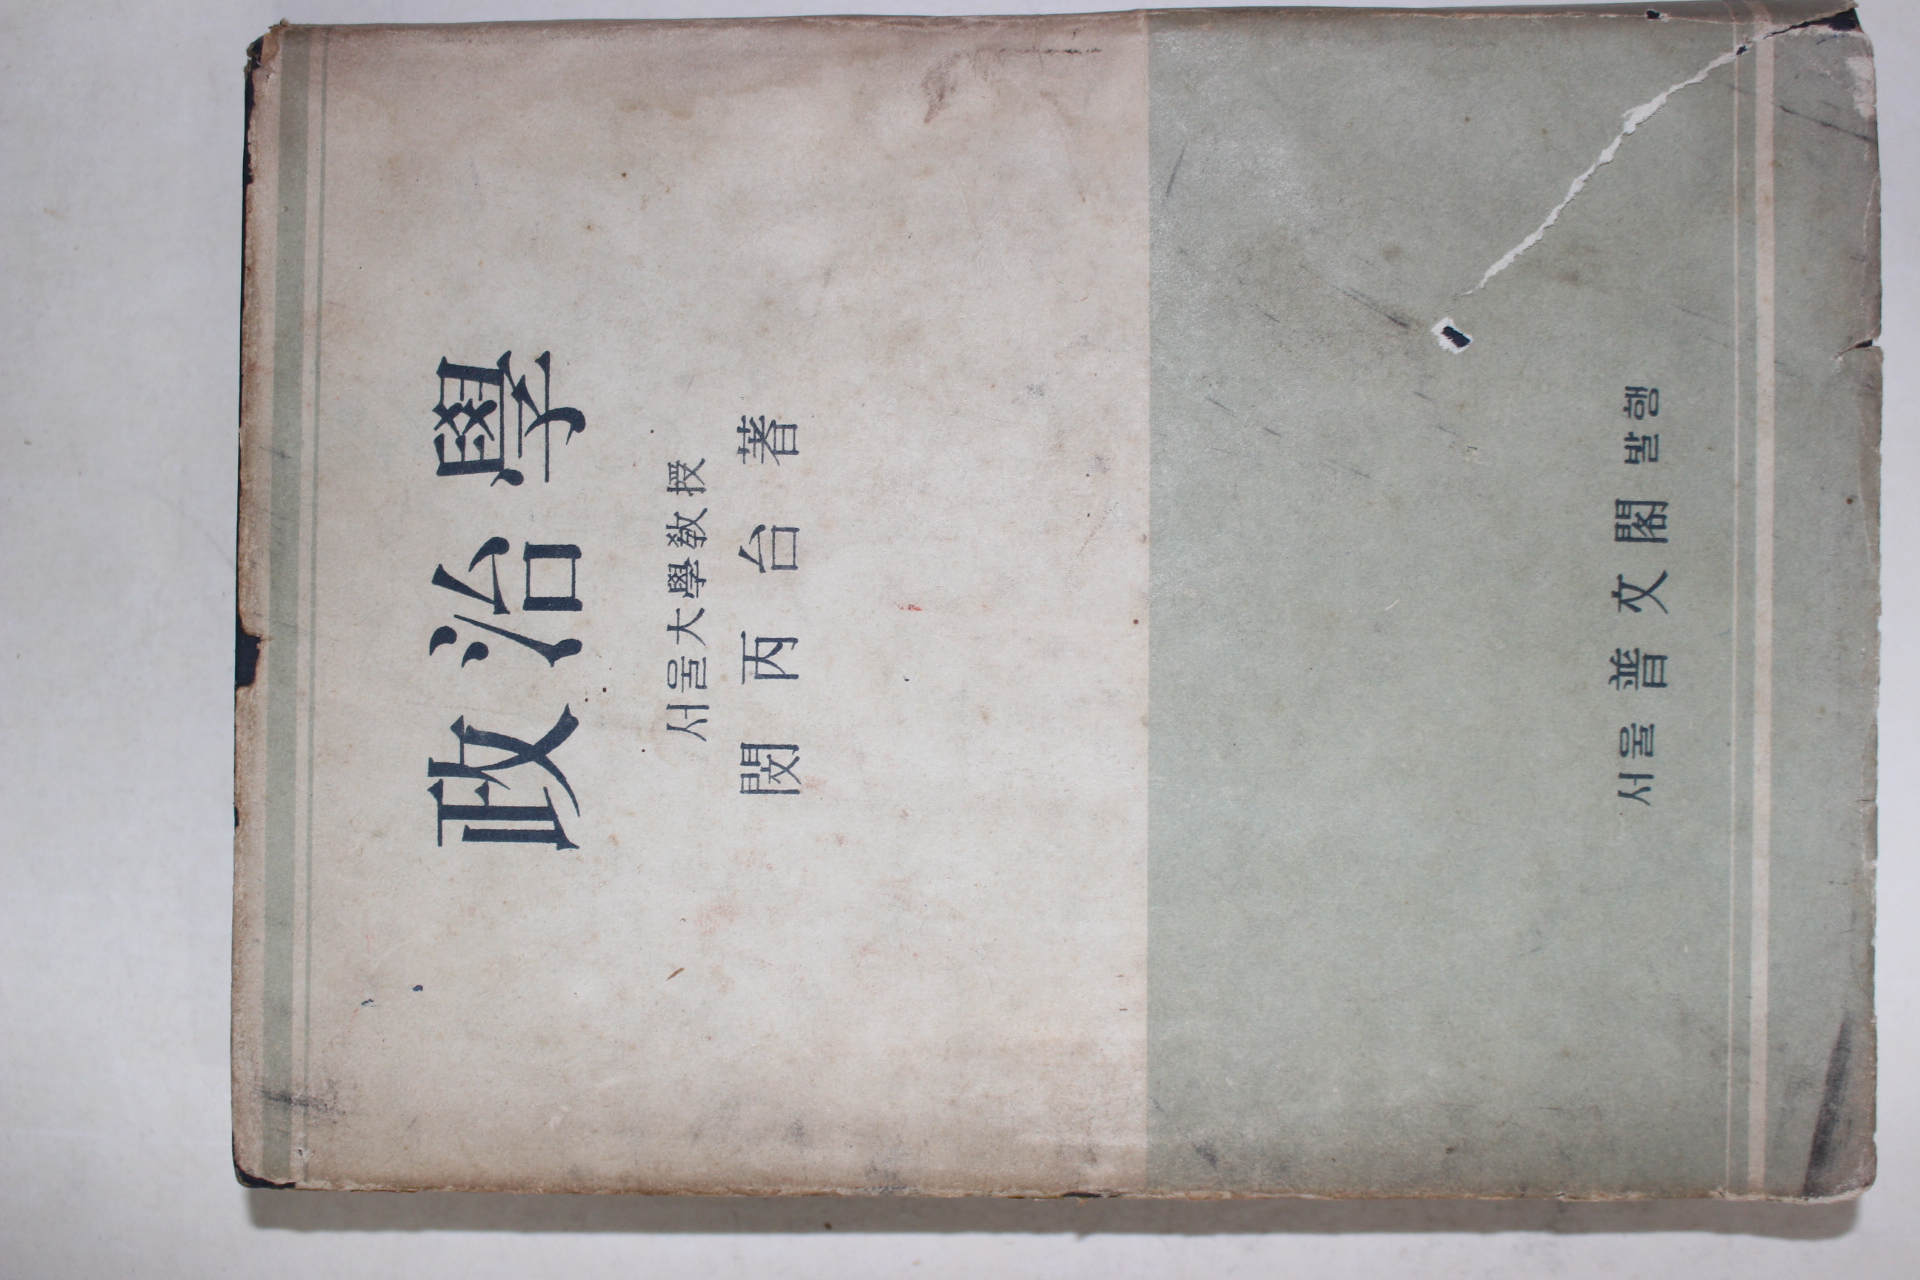 政治學
서울大學敎授
閔丙台著
서울 普文閣 발행